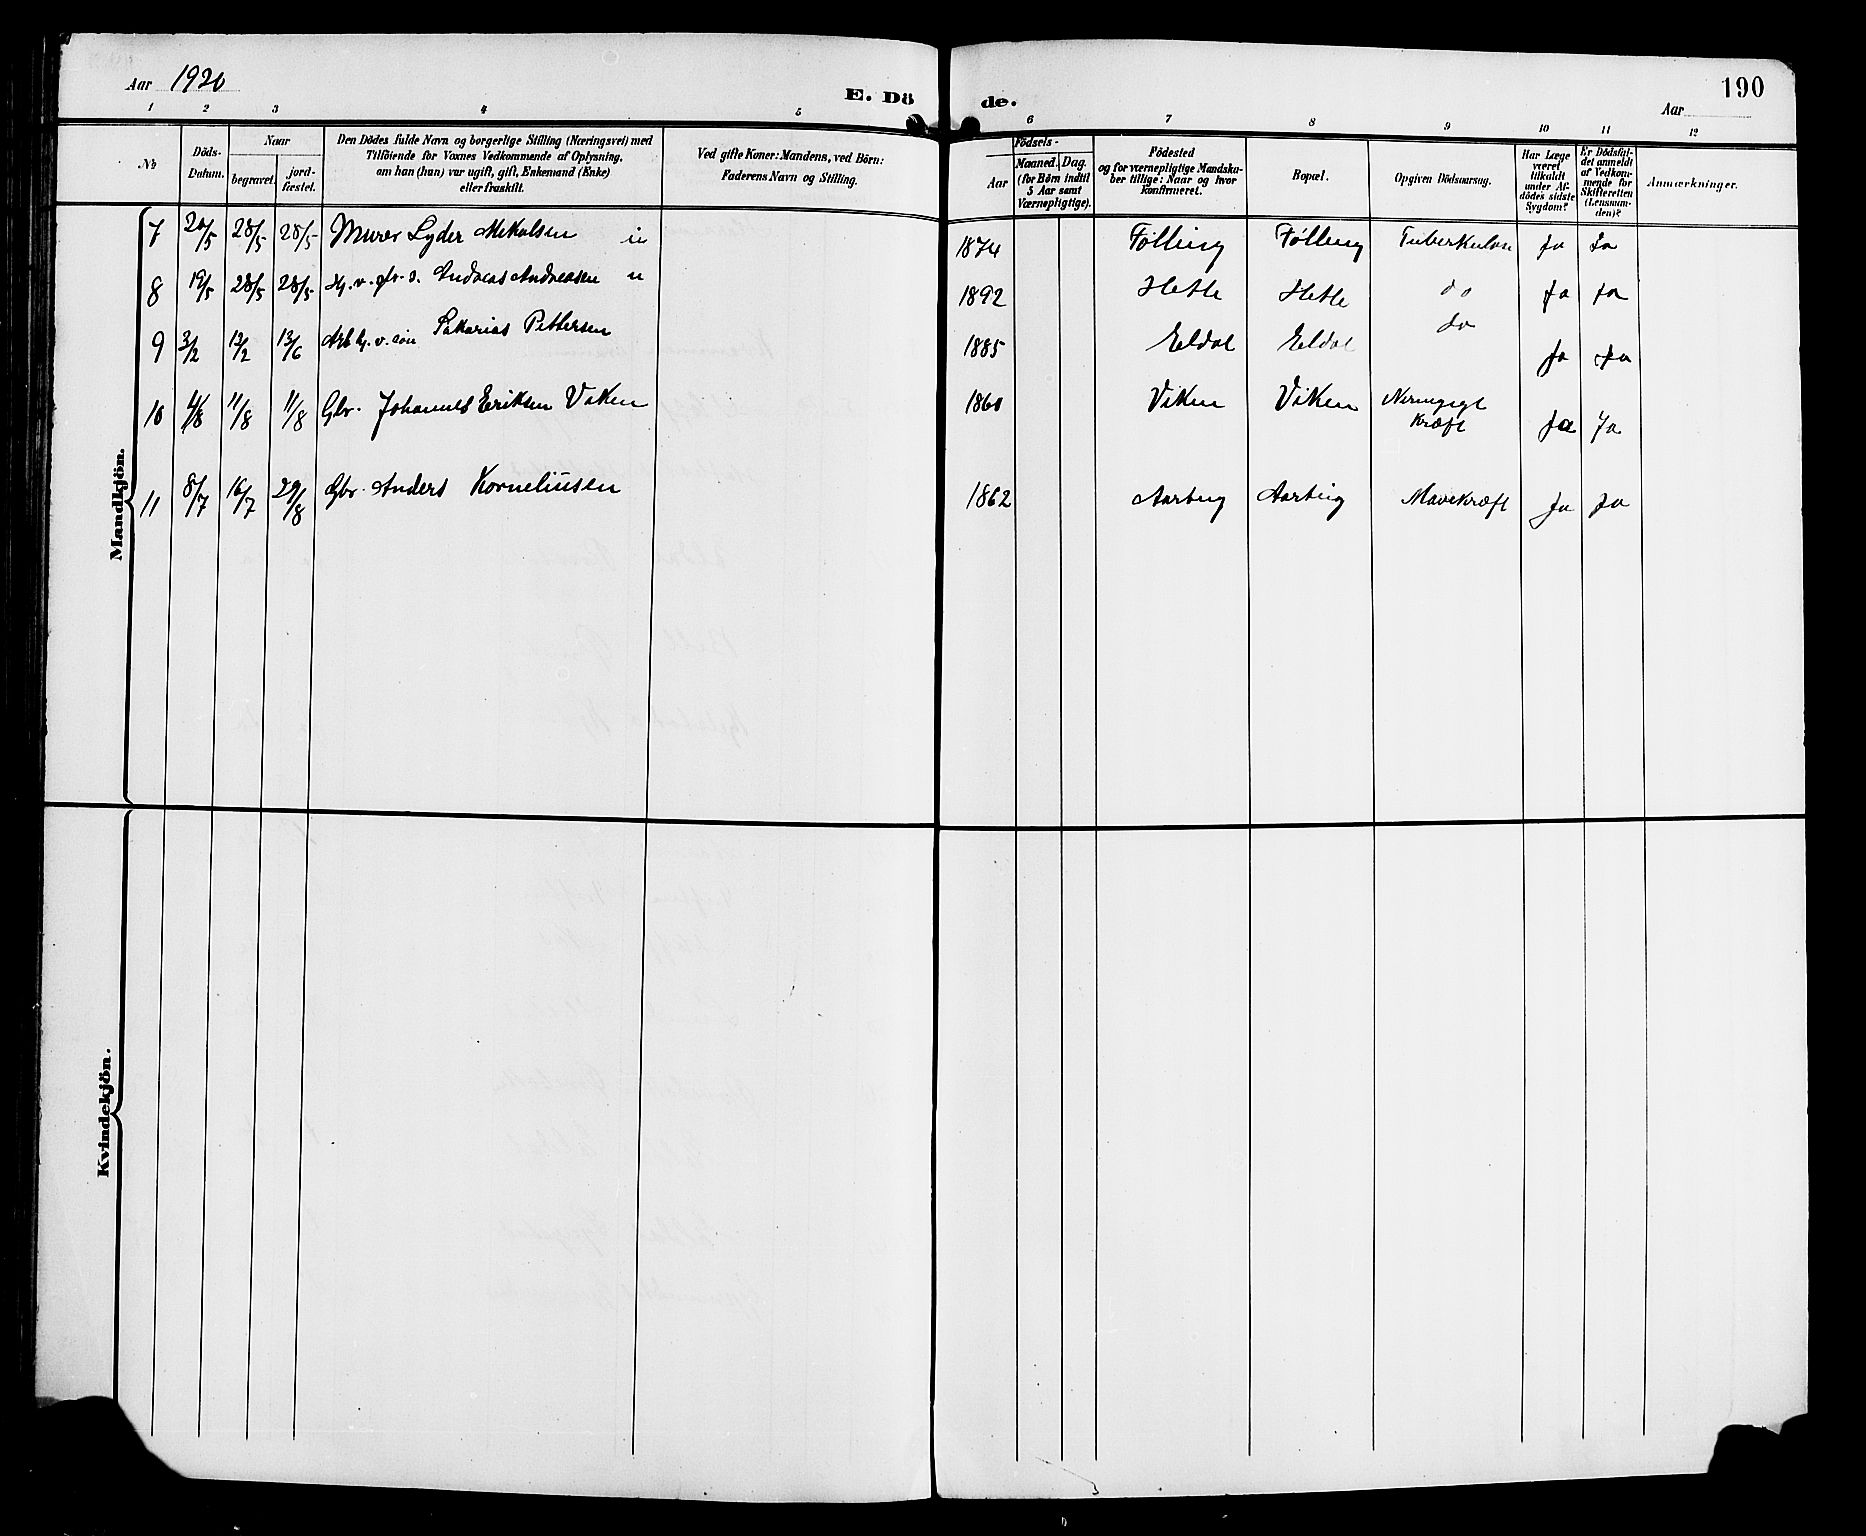 Aar 1920
E. Dö
de.
Aar
190
1 2 3 4 5 6 7 8 9 10 11 12
No
Döds-
Datum.
Naar
begravet.
jord-
fæstet.
Den Dödes fulde Navn og borgerlige Stilling (Næringsvei) med
Tilföiende for Voxnes Vedkommende af Oplysning,
om han (hun) var ugift, gift, Enkemand (Enke)
eller fraskilt.
Ved gifte Koner: Mandens, ved Börn:
Faderens Navn og Stilling.
Födsels-
Aar
Maaned. Dag.
(for Börn indtil
5 Aar samt
Værnepligtige).
Födested
og for værnepligtige Mandska-
ber tillige: Naar og hvor
konfirmeret.
Bopæl.
Opgiven Dödsaarsag.
Har Læge
været
tilkaldt
under Af-
dödes sidste
Sygdom?
Er Dödsfal-
det anmeldt
af Vedkom-
mende for
Skifteretten
(Lensman-
den)?
Anmærkninger.
Mandkjön.
7 20/5 28/5 28/5 Murer Lyder Mekalsen 1874 Følling Følling Tuberkulose ja ja
8 19/5 28/5 28/5 Andreas Andreasen u 1892 Hetle Hetle do ja ja
9 3/2 12/2 13/6 Sakarias Pettersen 1885 Eldal Eldal do ja ja
10 4/8 11/8 11/8 Gbr. Johannes Eriksen Viken 1860 Viken Viken
Kræft ja ja
11 8/7 16/7 29/8 Gbr. Anders Korneliusen 1862 Aarberg Aarberg Mavekræft ja ja
Kvindekjön.